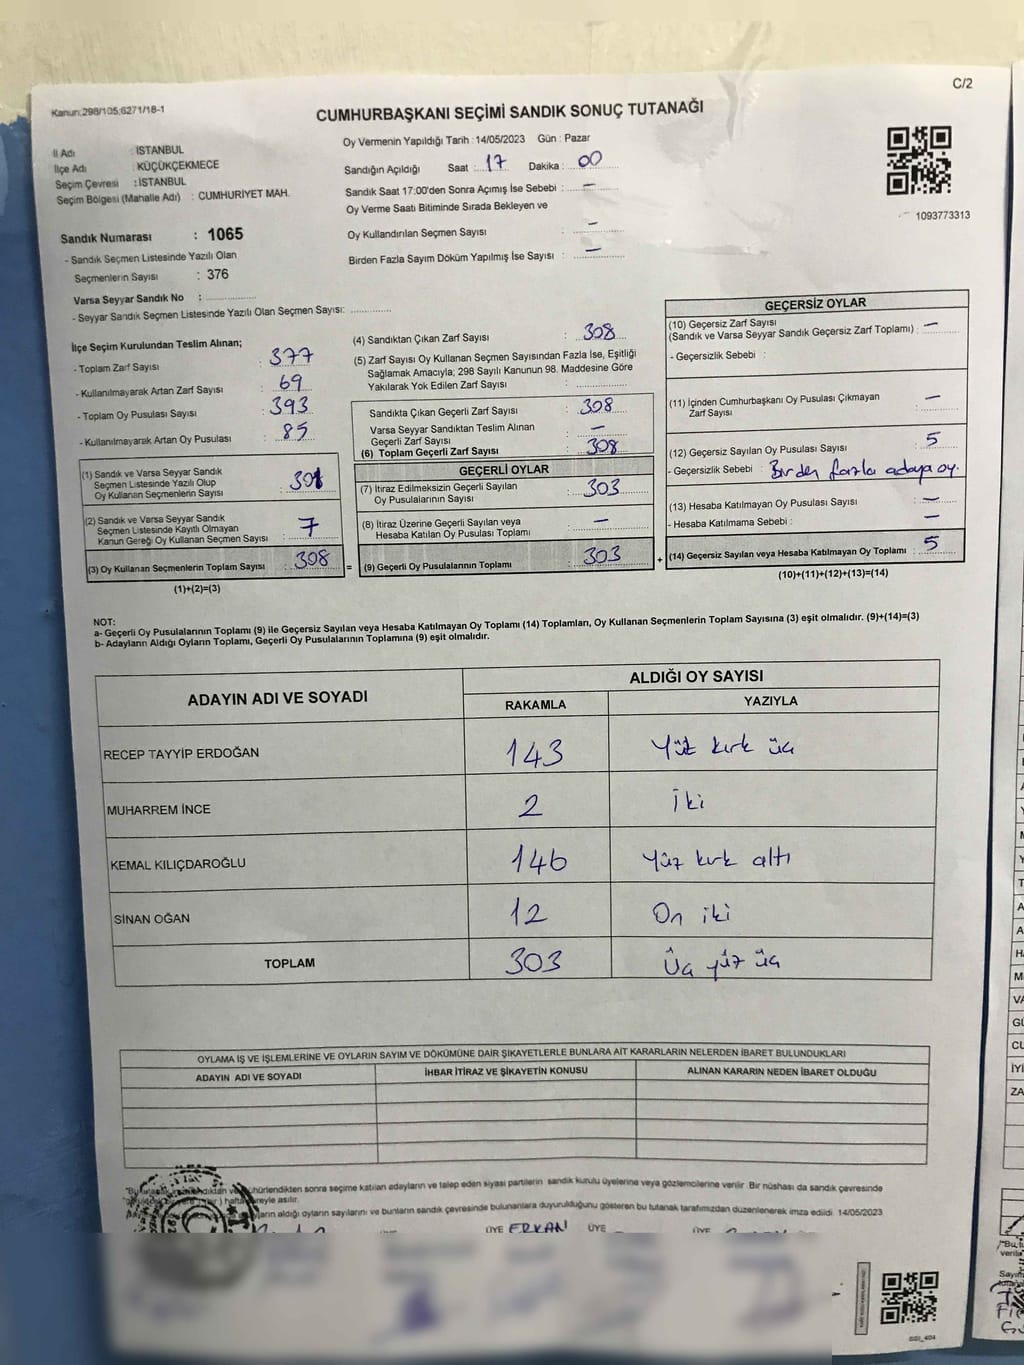 C/2
Kanun:298/105;6271/18-1
CUMHURBAŞKANI SEÇİMİ SANDIK SONUÇ TUTANAĞI
İl Adı : İSTANBUL
İlçe Adı : KÜÇÜKÇEKMECE
Seçim Çevresi : İSTANBUL
Seçim Bölgesi (Mahalle Adı) : CUMHURİYET MAH.
Sandık Numarası : 1065
- Sandık Seçmen Listesinde Yazılı Olan
Seçmenlerin Sayısı : 376
Varsa Seyyar Sandık No :
- Seyyar Sandık Seçmen Listesinde Yazılı Olan Seçmen Sayısı:
Oy Vermenin Yapıldığı Tarih : 14/05/2023 Gün : Pazar
Sandığın Açıldığı Saat : 17 Dakika : 00
Sandık Saat 17:00'den Sonra Açımış İse Sebebi : –
Oy Verme Saati Bitiminde Sırada Bekleyen ve
Oy Kullandırılan Seçmen Sayısı : –
Birden Fazla Sayım Döküm Yapılmış İse Sayısı : –
1093773313
İlçe Seçim Kurulundan Teslim Alınan;
- Toplam Zarf Sayısı : 377
- Kullanılmayarak Artan Zarf Sayısı : 69
- Toplam Oy Pusulası Sayısı : 393
- Kullanılmayarak Artan Oy Pusulası : 85
(1) Sandık ve Varsa Seyyar Sandık
Seçmen Listesinde Yazılı Olup
Oy Kullanan Seçmenlerin Sayısı : 301
(2) Sandık ve Varsa Seyyar Sandık
Seçmen Listesinde Kayıtlı Olmayan
Kanun Gereği Oy Kullanan Seçmen Sayısı : 7
(3) Oy Kullanan Seçmenlerin Toplam Sayısı : 308
(1)+(2)=(3)
(4) Sandıktan Çıkan Zarf Sayısı : 308
(5) Zarf Sayısı Oy Kullanan Seçmen Sayısından Fazla İse, Eşitliği
Sağlamak Amacıyla; 298 Sayılı Kanunun 98. Maddesine Göre
Yakılarak Yok Edilen Zarf Sayısı :
Sandıkta Çıkan Geçerli Zarf Sayısı : 308
Varsa Seyyar Sandıktan Teslim Alınan
Geçerli Zarf Sayısı : –
(6) Toplam Geçerli Zarf Sayısı : 308
GEÇERLİ OYLAR
(7) İtiraz Edilmeksizin Geçerli Sayılan
Oy Pusulalarının Sayısı : 303
(8) İtiraz Üzerine Geçerli Sayılan veya
Hesaba Katılan Oy Pusulası Toplamı : –
= (9) Geçerli Oy Pusulalarının Toplamı : 303
GEÇERSİZ OYLAR
(10) Geçersiz Zarf Sayısı
(Sandık ve Varsa Seyyar Sandık Geçersiz Zarf Toplamı) : –
- Geçersizlik Sebebi :
(11) İçinden Cumhurbaşkanı Oy Pusulası Çıkmayan
Zarf Sayısı : –
(12) Geçersiz Sayılan Oy Pusulası Sayısı : 5
- Geçersizlik Sebebi : Birden fazla adaya oy.
(13) Hesaba Katılmayan Oy Pusulası Sayısı : –
- Hesaba Katılmama Sebebi : –
+ (14) Geçersiz Sayılan veya Hesaba Katılmayan Oy Toplamı : 5
(10)+(11)+(12)+(13)=(14)
NOT:
a- Geçerli Oy Pusulalarının Toplamı (9) ile Geçersiz Sayılan veya Hesaba Katılmayan Oy Toplamı (14) Toplamları, Oy Kullanan Seçmenlerin Toplam Sayısına (3) eşit olmalıdır. (9)+(14)=(3)
b- Adayların Aldığı Oyların Toplamı, Geçerli Oy Pusulalarının Toplamına (9) eşit olmalıdır.
ADAYIN ADI VE SOYADI ALDIĞI OY SAYISI
RAKAMLA YAZIYLA
RECEP TAYYİP ERDOĞAN 143 Yüz kırk üç
MUHARREM İNCE 2 İki
KEMAL KILIÇDAROĞLU 146 Yüz kırk altı
SİNAN OĞAN 12 On iki
TOPLAM 303 Üç yüz üç
OYLAMA İŞ VE İŞLEMLERİNE VE OYLARIN SAYIM VE DÖKÜMÜNE DAİR ŞİKAYETLERLE BUNLARA AİT KARARLARIN NELERDEN İBARET BULUNDUKLARI
ADAYIN ADI VE SOYADI İHBAR İTİRAZ VE ŞİKAYETİN KONUSU ALINAN KARARIN NEDEN İBARET OLDUĞU
sonra seçime katılan adayların ve talep eden siyasi partilerin sandık kurulu üyelerine veya gözlemcilerine verilir. Bir nüshası da sandık çevresinde
asılır.
aldığı oyların sayılarını ve bunların sandık çevresinde bulunanlara duyurulduğunu gösteren bu tutanak tarafımızdan düzenlenerek imza edildi. 14/05/2023
ÜYE ERKAN ÜYE ÜYE